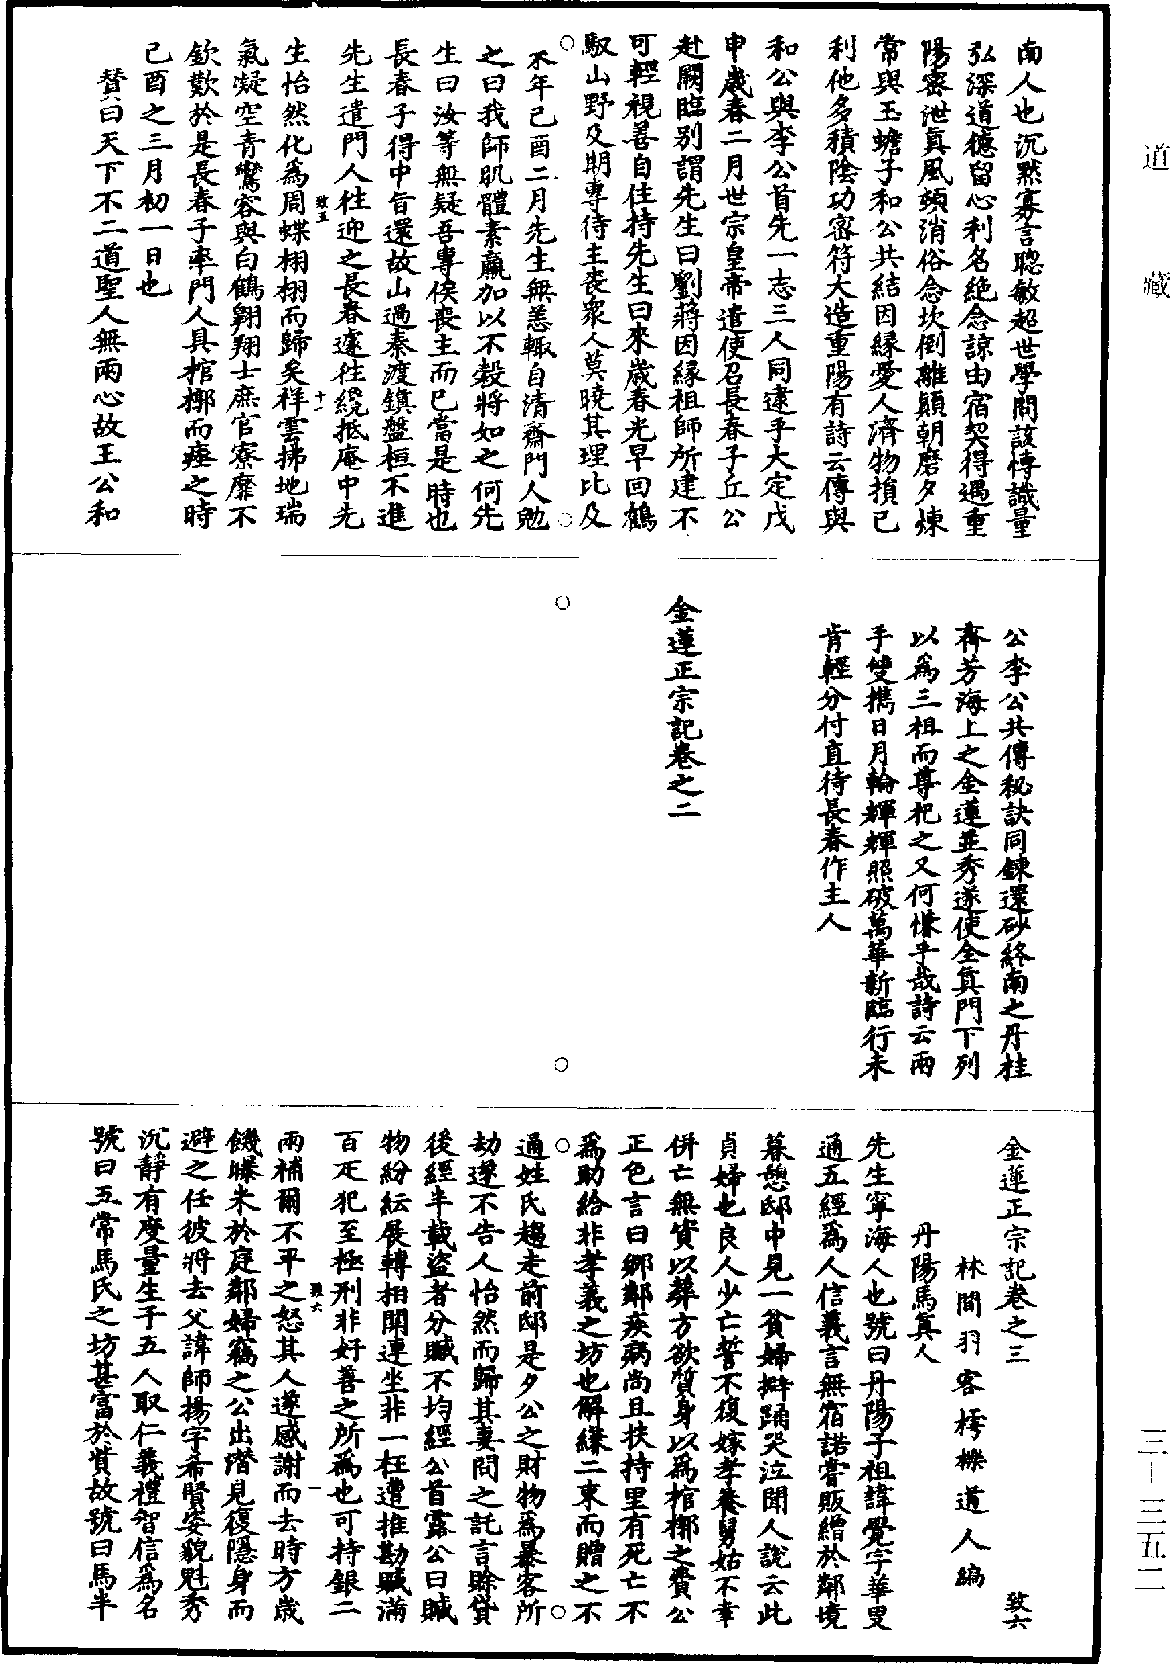 道藏
南人也沉默寡言聰敏超世學問該博識量
弘深道德留心利名絕念諒由宿契得遇重
陽密泄真風頓消俗念坎倒離顛朝磨夕煉
常與玉蟾子和公共結因緣愛人濟物損己
利他多積陰功密符大造重陽有詩云傳與
和公與李公首先一志三人同逮乎大定戊
申歲春二月世宗皇帝遣使召長春子丘公
赴闕臨別謂先生曰劉蔣因緣祖師所建不
可輕視善自住持先生曰來歲春光早回鶴
馭山野及期專待主喪眾人莫曉其理比及
來年己酉二月先生無恙輒自清齋門人勉
之曰我師肌體素羸加以不穀將如之何先
生曰汝等無疑吾專俟喪主而已當是時也
長春子得中旨還故山過秦渡鎮盤桓不進
先生遣門人往迎之長春遽往纔抵庵中先
生怡然化為周蝶栩栩而歸矣祥雲拂地瑞
致五
十一
氣凝空青鸞容與白鶴翱翔士庶官寮靡不
欽歎於是長春子率門人具棺槨而瘞之時
己酉之三月初一日也
贊曰天下不二道聖人無兩心故王公和
公李公共傳秘訣同鍊還砂終南之丹桂
齊芳海上之金蓮並秀遂使全真門下列
以為三祖而尊祀之又何慊乎哉詩云兩
手雙擕日月輪輝輝照破萬華新臨行未
肯輕分付直待長春作主人
金蓮正宗記卷之二
金蓮正宗記卷之三
致六
林間羽客樗櫟道人編
丹陽馬真人
先生寧海人也號曰丹陽子祖諱覺字華叟
通五經為人信義言無宿諾嘗販繒於鄰境
暮憩邸中見一貧婦擗踊哭泣聞人說云此
貞婦也良人少亡誓不復嫁孝養舅姑不幸
併亡無貲以葬方欲質身以為棺槨之費公
正色言曰鄉鄰疾病尚且扶持里有死亡不
為助給非孝義之坊也解縑二束而贈之不
通姓氏趨走前邸是夕公之財物為暴客所
劫遂不告人怡然而歸其妻問之託言賒貸
後經半載盜者分贓不均經公首露公曰贓
物紛紜展轉相關連坐非一枉遭推勘贓滿
百疋犯至極刑非好善之所為也可持銀二
兩補爾不平之怒其人遂感謝而去時方歲
致六
一
饑曝米於庭鄰婦竊之公出潛見復隱身而
避之任彼將去父諱師揚字希賢姿貌魁秀
沉靜有度量生子五人取仁義禮智信為名
號曰五常馬氏之坊甚富於貲故號曰馬半
三—三五二